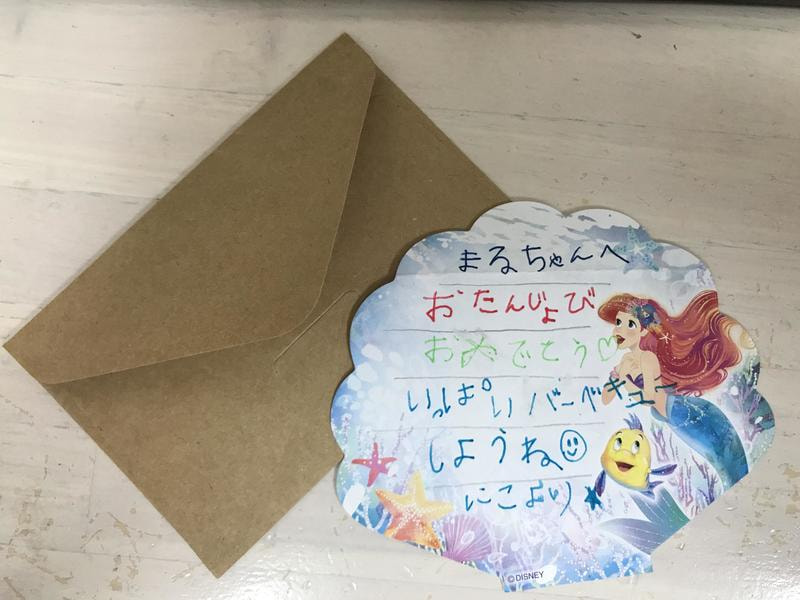 まるちゃんへ
おたんじょび
おめでとう♡
いっぱいバーベキュー
しようね☺
にこより★
©DISNEY